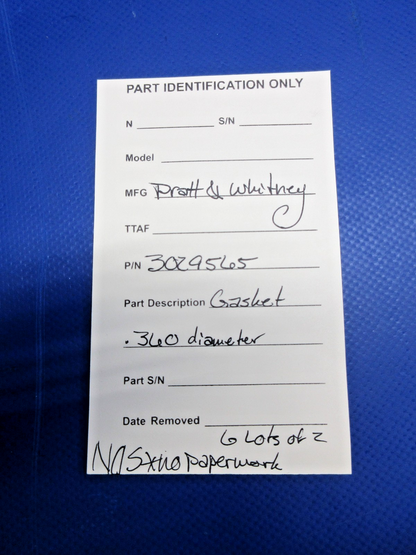 PART IDENTIFICATION ONLY
N S/N
Model
MFG Pratt & Whitney
TTAF
P/N 3029565
Part Description Gasket
.360 diameter
Part S/N
Date Removed
6 Lots of 2
NOS *no paperwork